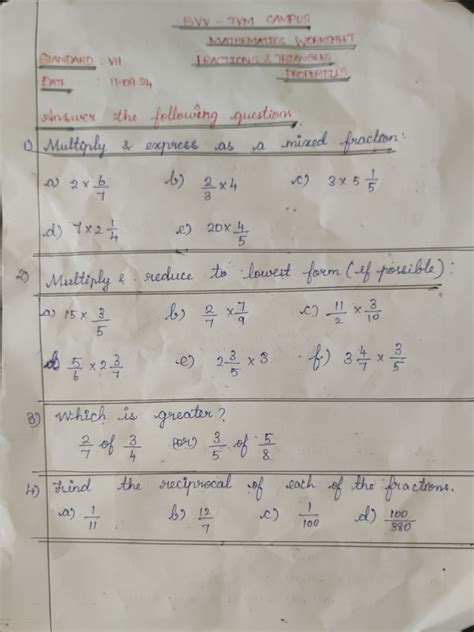 BVV - TVM CAMPUS
MATHEMATICS WORKSHEET
STANDARD : VII FRACTIONS & TRIANGLES
PROPERTIES
DATE :
Answer the following questions.
1) Multiply & express as a mixed fraction:
a) 2 x 6/7 b) 2/3 x 4 c) 3 x 5 1/5
d) 7 x 2 1/4 e) 20 x 4/5
2) Multiply & reduce to lowest form (if possible):
a) 15 x 3/5 b) 2/7 x 7/9 c) 11/2 x 3/10
d) 5/6 x 2 3/7 e) 2 3/5 x 3 f) 3 4/7 x 3/5
3) Which is greater?
2/7 of 3/4 (or) 3/5 of 5/8
4) Find the reciprocal of each of the fractions.
a) 1/11 b) 12/7 c) 1/100 d)